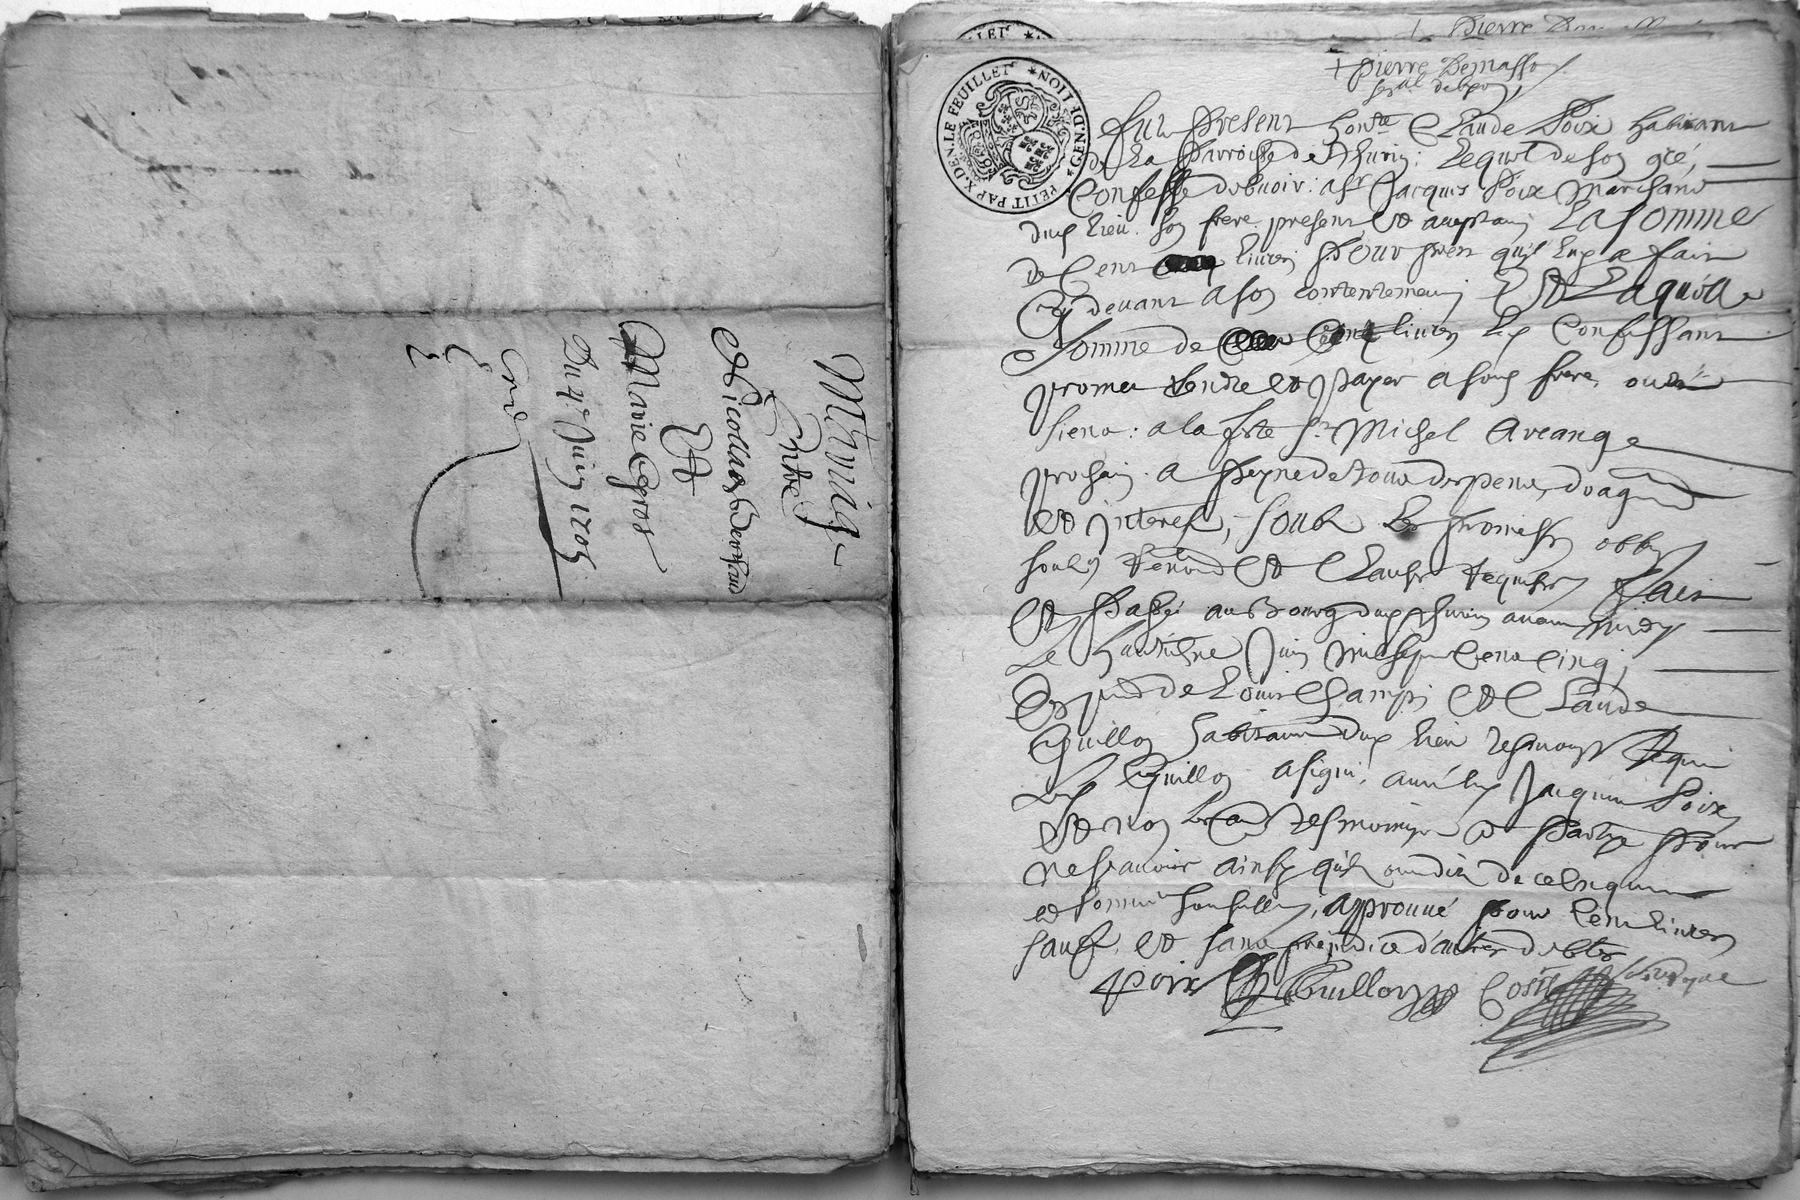 Mariage
Entre
Nicollas
Et
Marie Legros
Du 4e Juin 1705
PETIT PAP. X. DEN. LE FEUILLET * GEN. DE LION *
+ Pierre
+ Pierre Demasso
Fut Present honble Claude Poix habitant
de La Parroisse de Thurin: Lequel de son gré,
Confesse debuoir: a sr Jacques Poix Marchand
dud Lieu. son frere present Et aceptant La somme
de Cent livres Pour prest qu'il luy a fait
Cy devant a son contentement Et Laquelle
Somme de Cent livres Led Confessant
promet Rendre Et Payer a sond frere, ou aux
siens: a la feste St Michel Arcange
prochain. a Peyne de Tous despens, domages
Et Interest, soubz Les promesses oblig
soubm Renon Et Clauses Requises Fait
Et Passé au Bourg dud Thurin avant midy
Le huictiesme Juin Mil sept Cens Cinq;
En pnce de Louis Champin Et Claude
Guillon habitants dud lieu tesmoins Requis
Led Guillon a signé, avec led Jacques Poix
Et non Les au tesmoings et Partye Pour
ne scauoir ainsy qu'ils ont dit de ce Enquis
et sommés, approuué pour Cent livres
sauf, Et sans prejudice d'autres debtes
Poix Guillon Coste